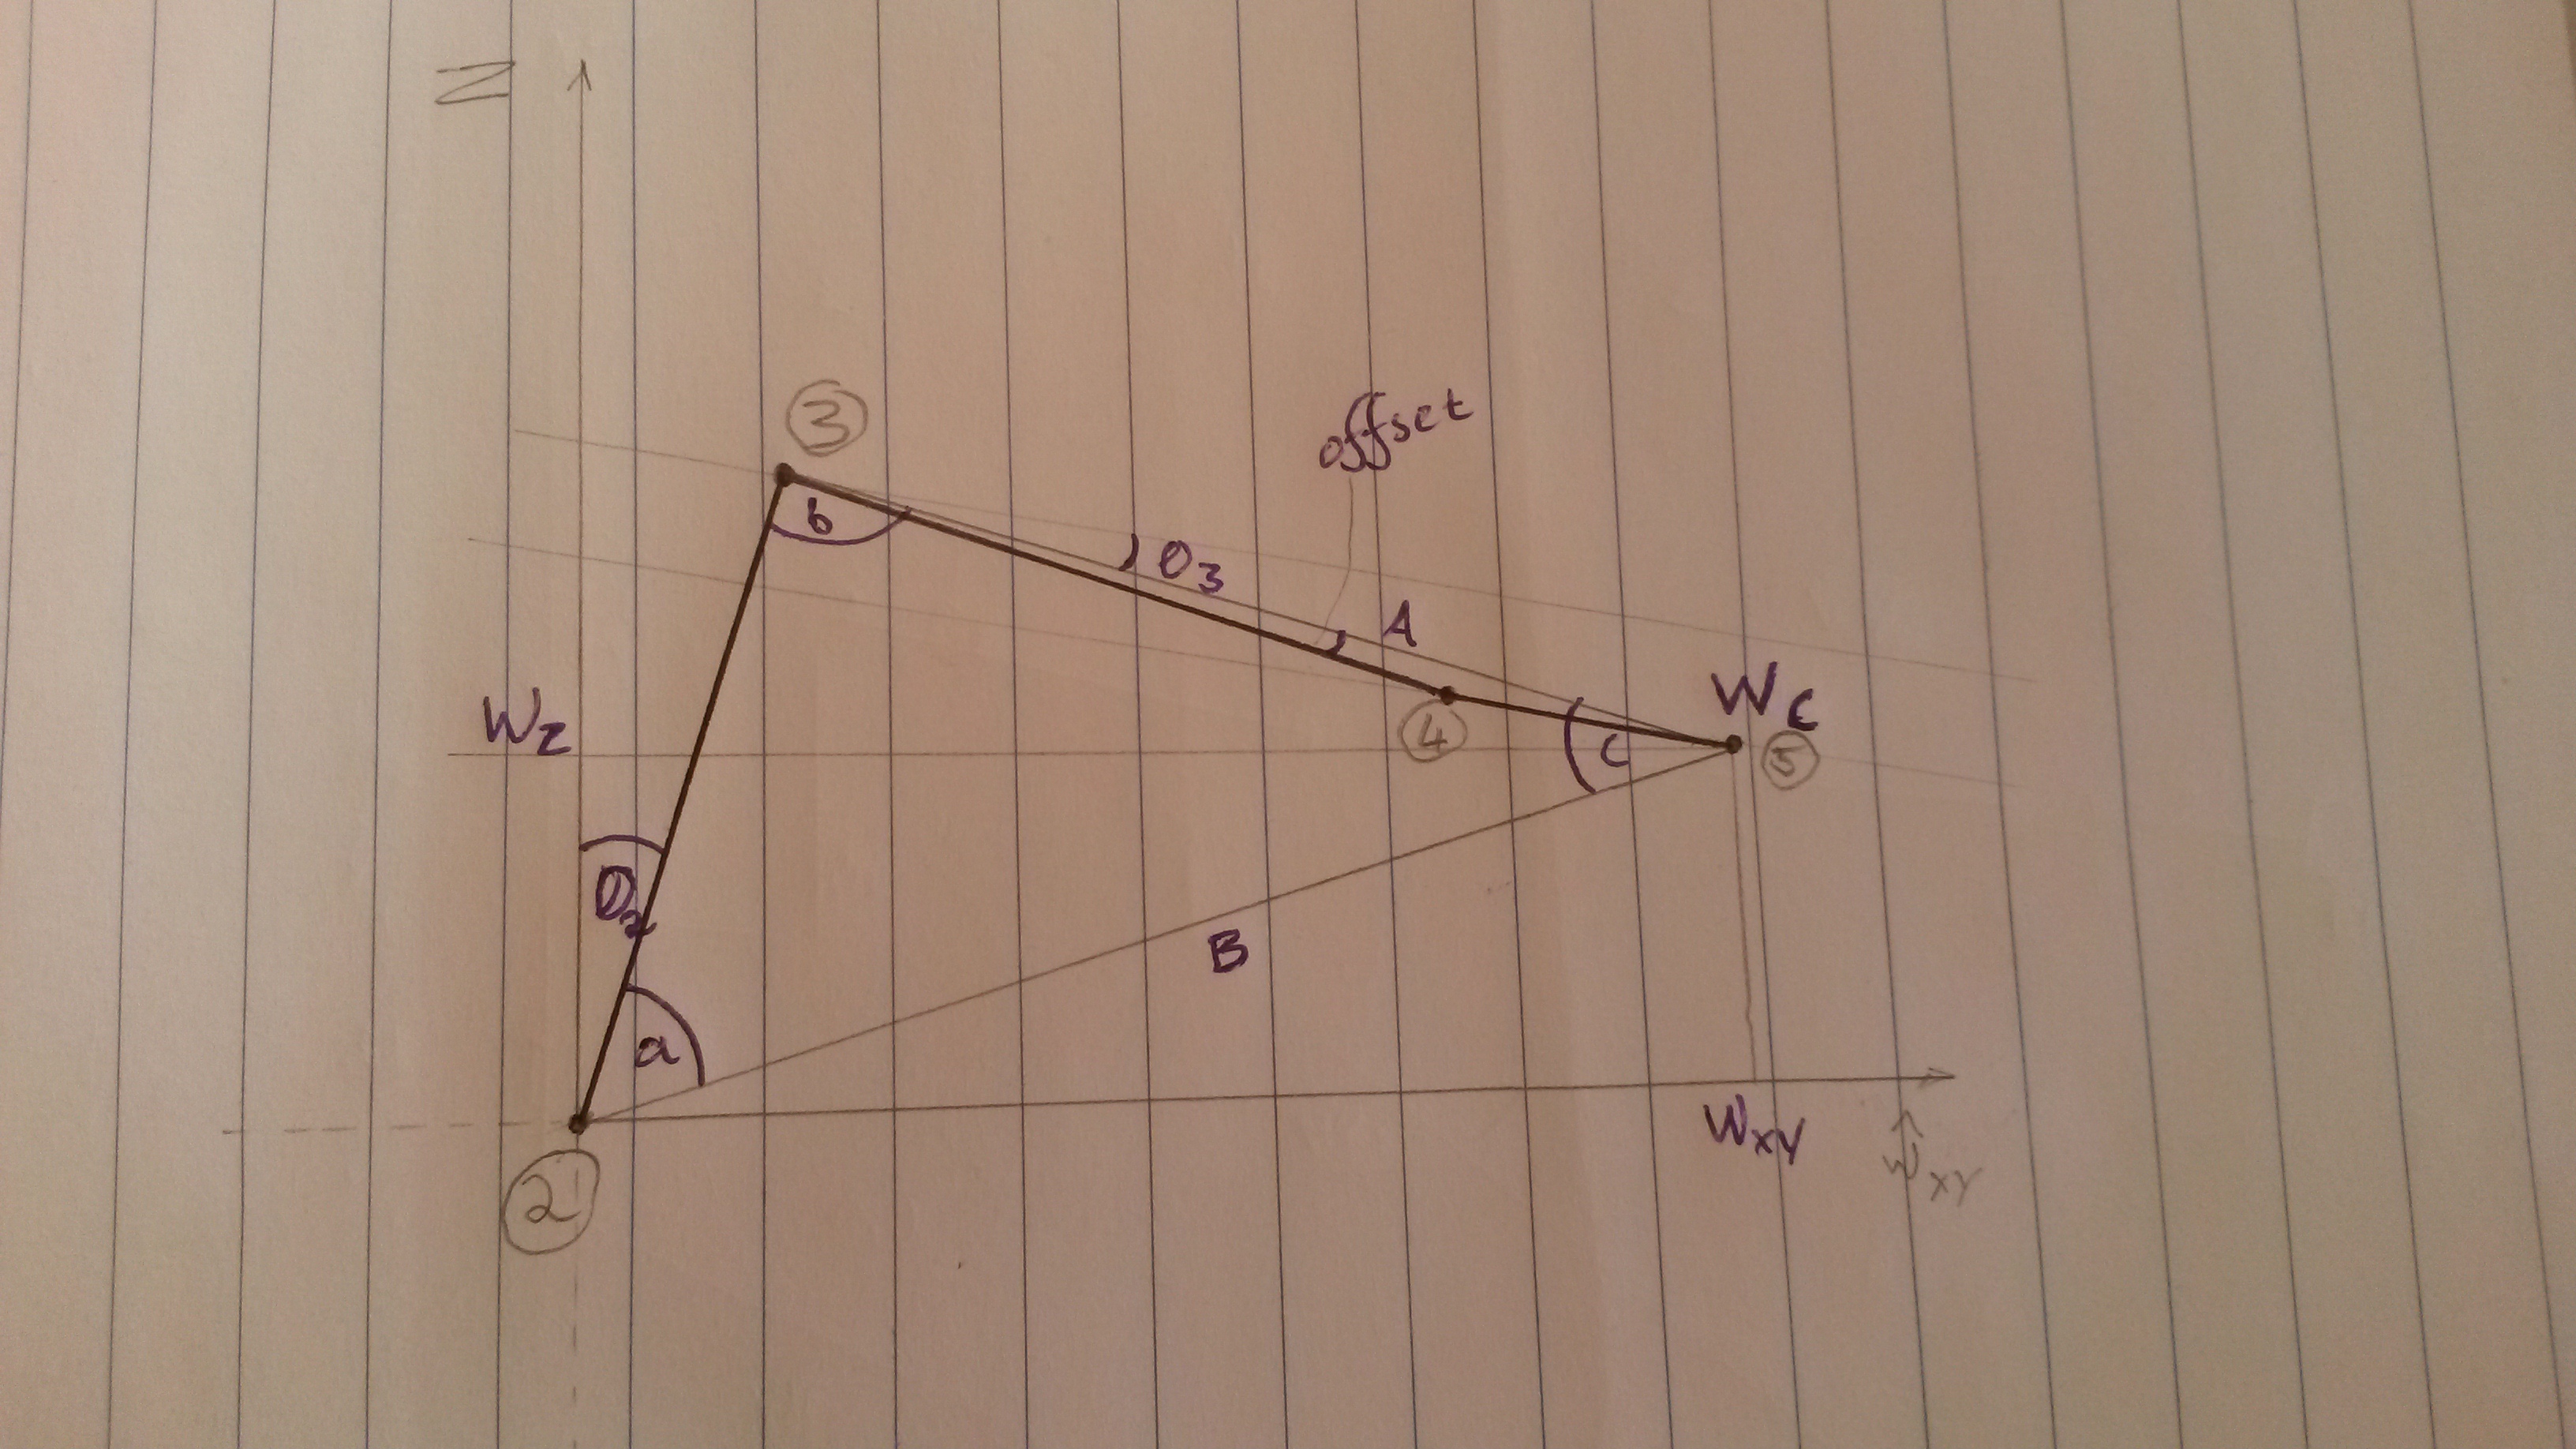 Z
3
offset
b
θ3
A
WC
WZ
4
C
5
θ2
B
a
WXY
WXY
2